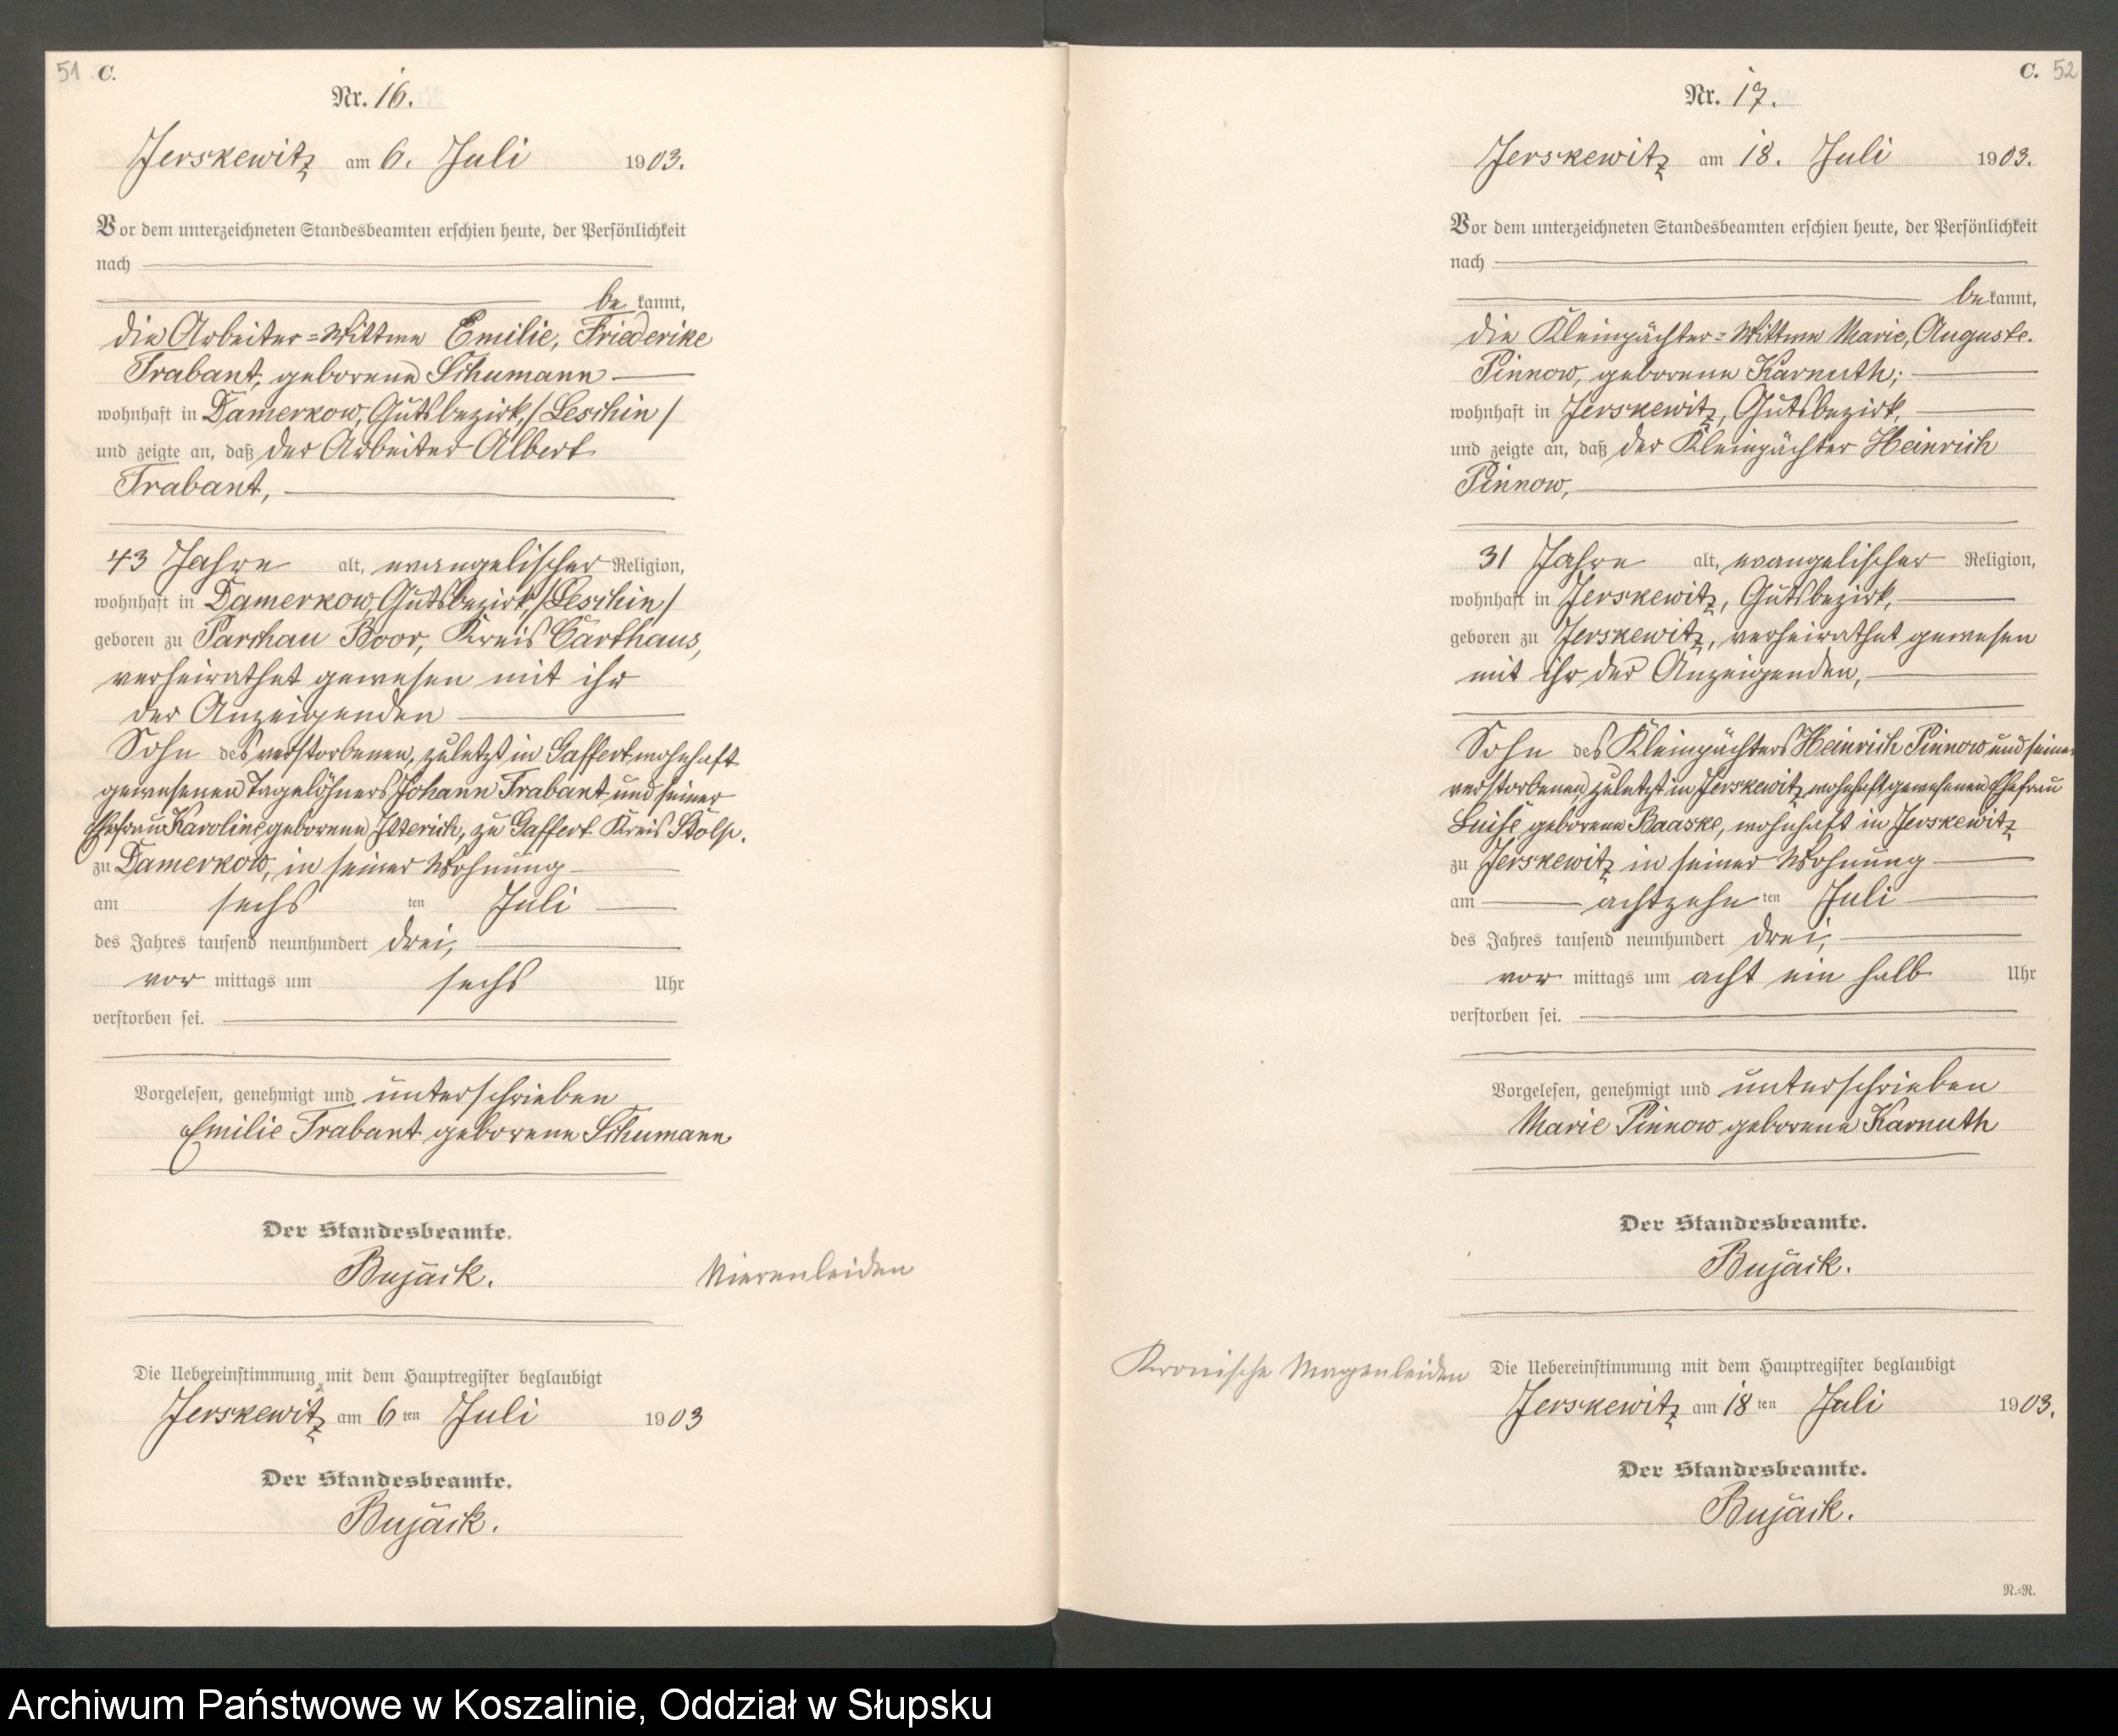 51 C.
Nr. 16.
Jerskewitz am 6. Juli 1903.
Vor dem unterzeichneten Standesbeamten erschien heute, der Persönlichkeit
nach
be kannt,
die Arbeiter=Wittwe Emilie, Friederike
Trabant, geborene Schumann
wohnhaft in Damerkow, Gutsbezirk, /Leschin/
und zeigte an, daß der Arbeiter Albert
Trabant,
43 Jahre alt, evangelischer Religion,
wohnhaft in Damerkow, Gutsbezirk, /Leschin/
geboren zu Parchau Boor, Kreis Carthaus,
verheirathet gewesen mit ihr
der Anzeigenden
Sohn des verstorbenen, zuletzt in Gaffert wohnhaft
gewesenen Tagelöhners Johann Trabant und seiner
Ehefrau Karoline geborene Itzerich, zu Gaffert Kreis Stolp.
zu Damerkow, in seiner Wohnung
am sechs ten Juli
des Jahres tausend neunhundert drei,
vor mittags um sechs Uhr
verstorben sei.
Vorgelesen, genehmigt und unterschrieben
Emilie Trabant geborene Schumann
Der Standesbeamte.
Bujack.
Nierenleiden
Die Uebereinstimmung mit dem Hauptregister beglaubigt
Jerskewitz am 6 ten Juli 1903
Der Standesbeamte.
Bujack.
C. 52
Nr. 17.
Jerskewitz am 18. Juli 1903.
Vor dem unterzeichneten Standesbeamten erschien heute, der Persönlichkeit
nach
be kannt,
die Kleinpächter=Wittwe Marie, Auguste.
Pinnow, geborene Karnuth;
wohnhaft in Jerskewitz, Gutsbezirk,
und zeigte an, daß der Kleinpächter Heinrich
Pinnow,
31 Jahre alt, evangelischer Religion,
wohnhaft in Jerskewitz, Gutsbezirk,
geboren zu Jerskewitz, verheirathet gewesen
mit ihr der Anzeigenden,
Sohn des Kleinpächters Heinrich Pinnow und seiner
verstorbenen, zuletzt in Jerskewitz wohnhaft gewesenen Ehefrau
Luise geborene Baaske, wohnhaft in Jerskewitz
zu Jerskewitz in seiner Wohnung
am achtzehn ten Juli
des Jahres tausend neunhundert drei,
vor mittags um acht ein halb Uhr
verstorben sei.
Vorgelesen, genehmigt und unterschrieben
Marie Pinnow geborene Karnuth
Der Standesbeamte.
Bujack.
Kronische Magenleiden
Die Uebereinstimmung mit dem Hauptregister beglaubigt
Jerskewitz am 18 ten Juli 1903.
Der Standesbeamte.
Bujack.
N.=R.
Archiwum Państwowe w Koszalinie, Oddział w Słupsku